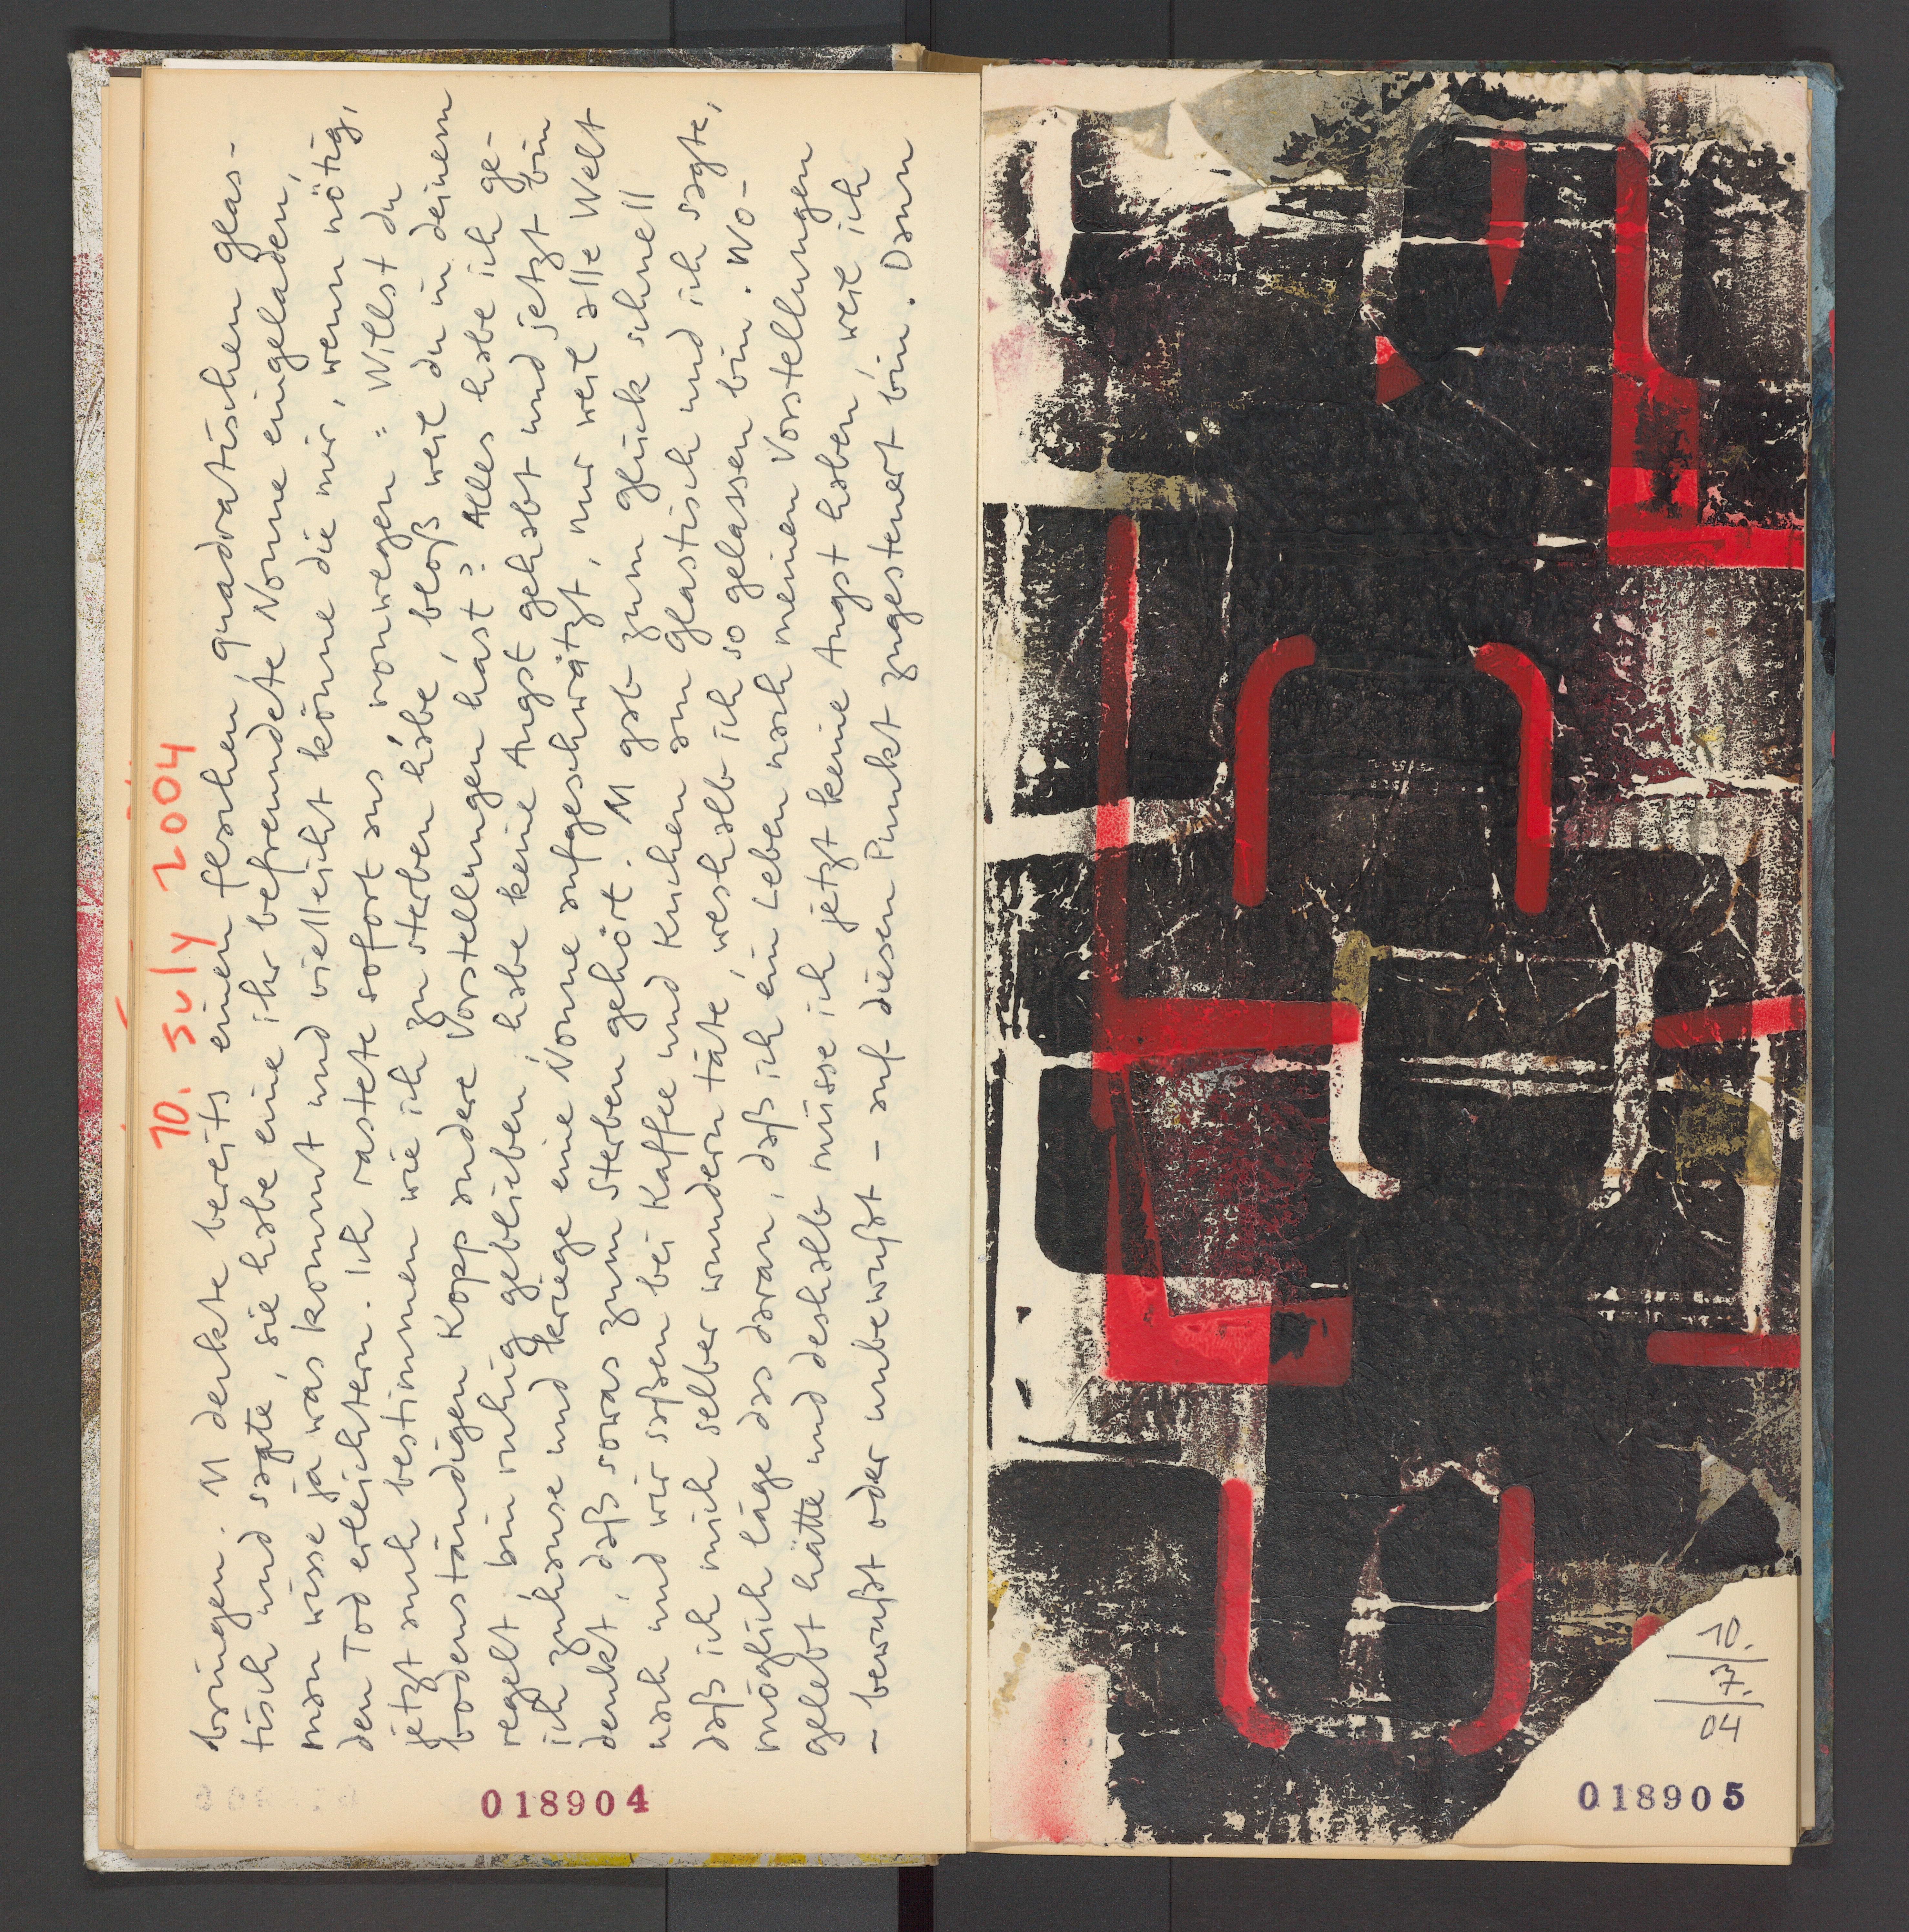 10. July 2004
bringen. M deckte bereits einen flachen, quadratischen Glas-
tisch und sagte, sie habe eine ihr befreundete Nonne eingeladen,
man wisse ja was kommt und vielleicht könne die mir, wenn nötig,
den Tod erleichtern. Ich rastete sofort aus, vonwegen: Willst du
jetzt auch bestimmen wie ich zu sterben habe, bloß weil du in deinem
bodenständigen Kopp andere Vorstellungen hast? Alles habe ich ge-
regelt, bin ruhig geblieben, habe keine Angst gehabt und jetzt bin
ich zuhause und kriege eine Nonne aufgeschwätzt, nur weil alle Welt
denkt, daß sowas zum Sterben gehört. M gab zum Glück schnell
nach und wir saßen bei Kaffee und Kuchen am Glastisch und ich sagte,
daß ich mich selber wundern täte, weshalb ich so gelassen bin. Wo-
möglich läge das daran, daß ich ein Leben nach meinen Vorstellungen
gelebt hätte und deshalb müsse ich jetzt keine Angst haben, weil ich
– bewußt oder unbewußt – auf diesen Punkt zugesteuert bin. Dann
018904
10.
7.
04
018905